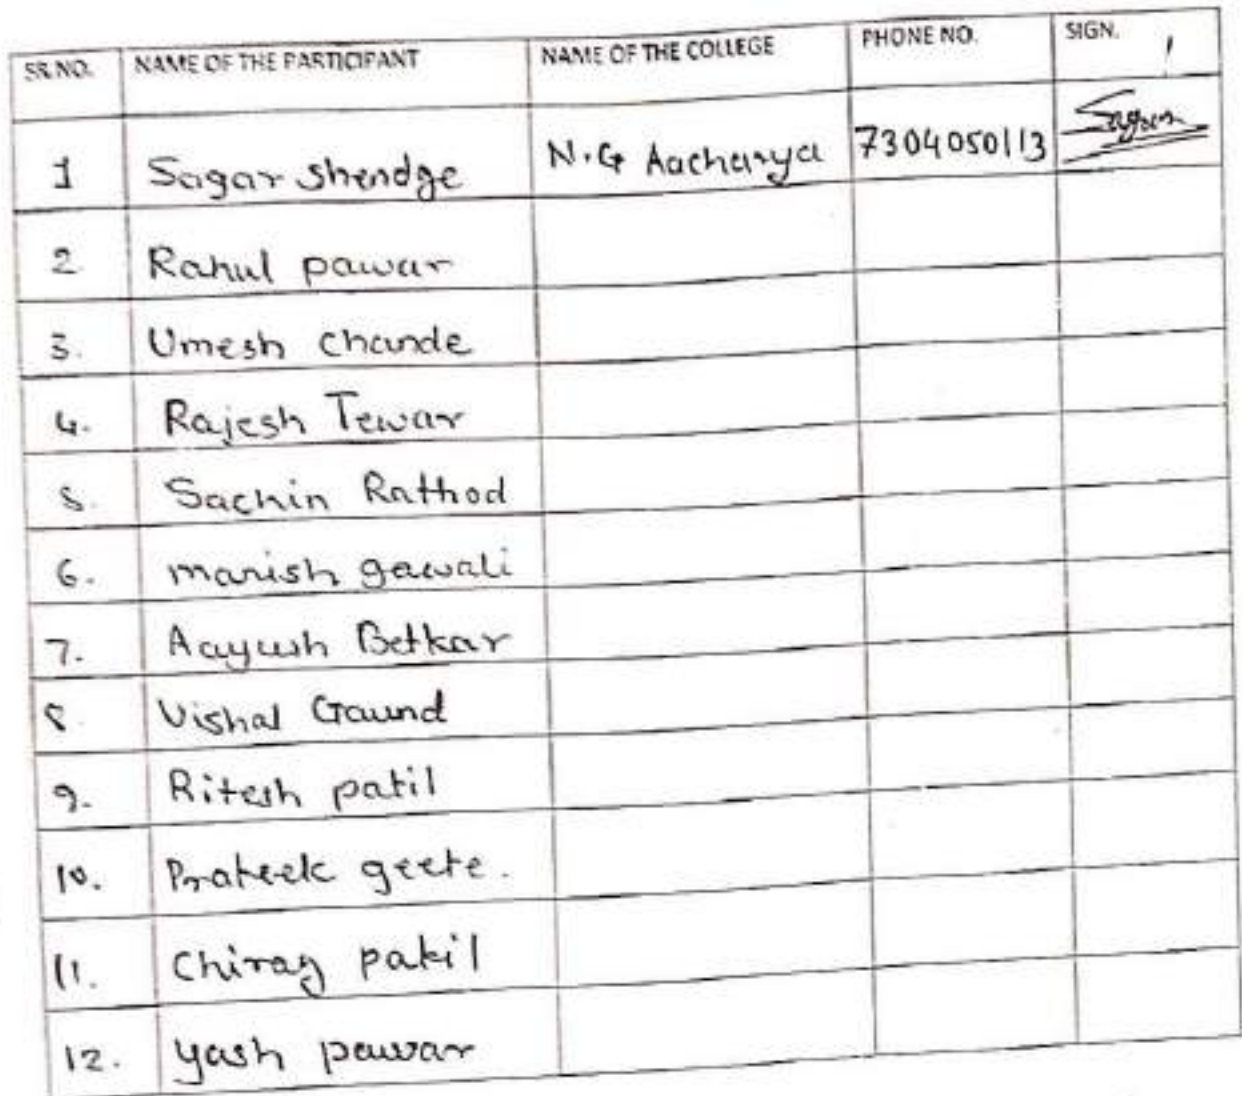 SR.NO. NAME OF THE PARTICIPANT NAME OF THE COLLEGE PHONE NO. SIGN.
1 Sagar Shendge N.G Aacharya 7304050113 Sagar
2 Rahul pawar
3. Umesh chande
4. Rajesh Tewar
5. Sachin Rathod
6. manish gawali
7. Aayush Betkar
8 Vishal Gaund
9. Ritesh patil
10. Prateek geete.
11. Chirag patil
12. yash pawar